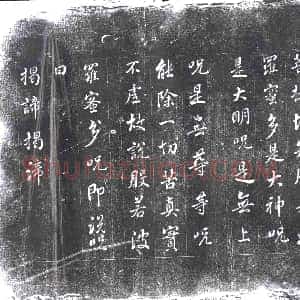 羅蜜多是大神呪
是大明呪是無上
呪是無等等呪
能除一切苦真實
不虛故說般若波
羅蜜多呪即說呪
曰
揭諦揭諦